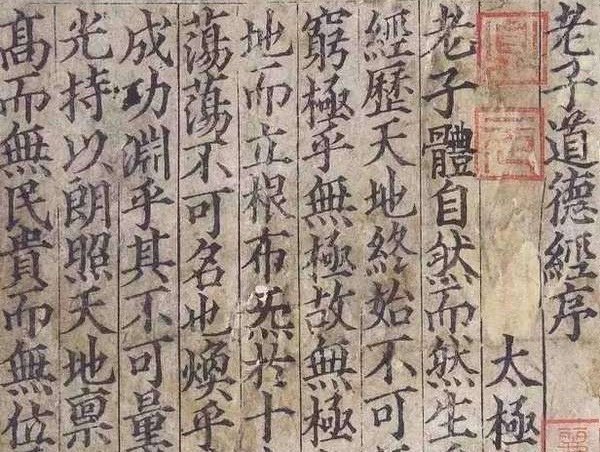 老子道德經序
太極
老子體自然而然生
經歷天地終始不可
窮極乎無極故無極
地而立根布炁扵十
蕩蕩不可名也煥乎
成功淵乎其不可量
光持以朗照天地稟
髙而無民貴而無位